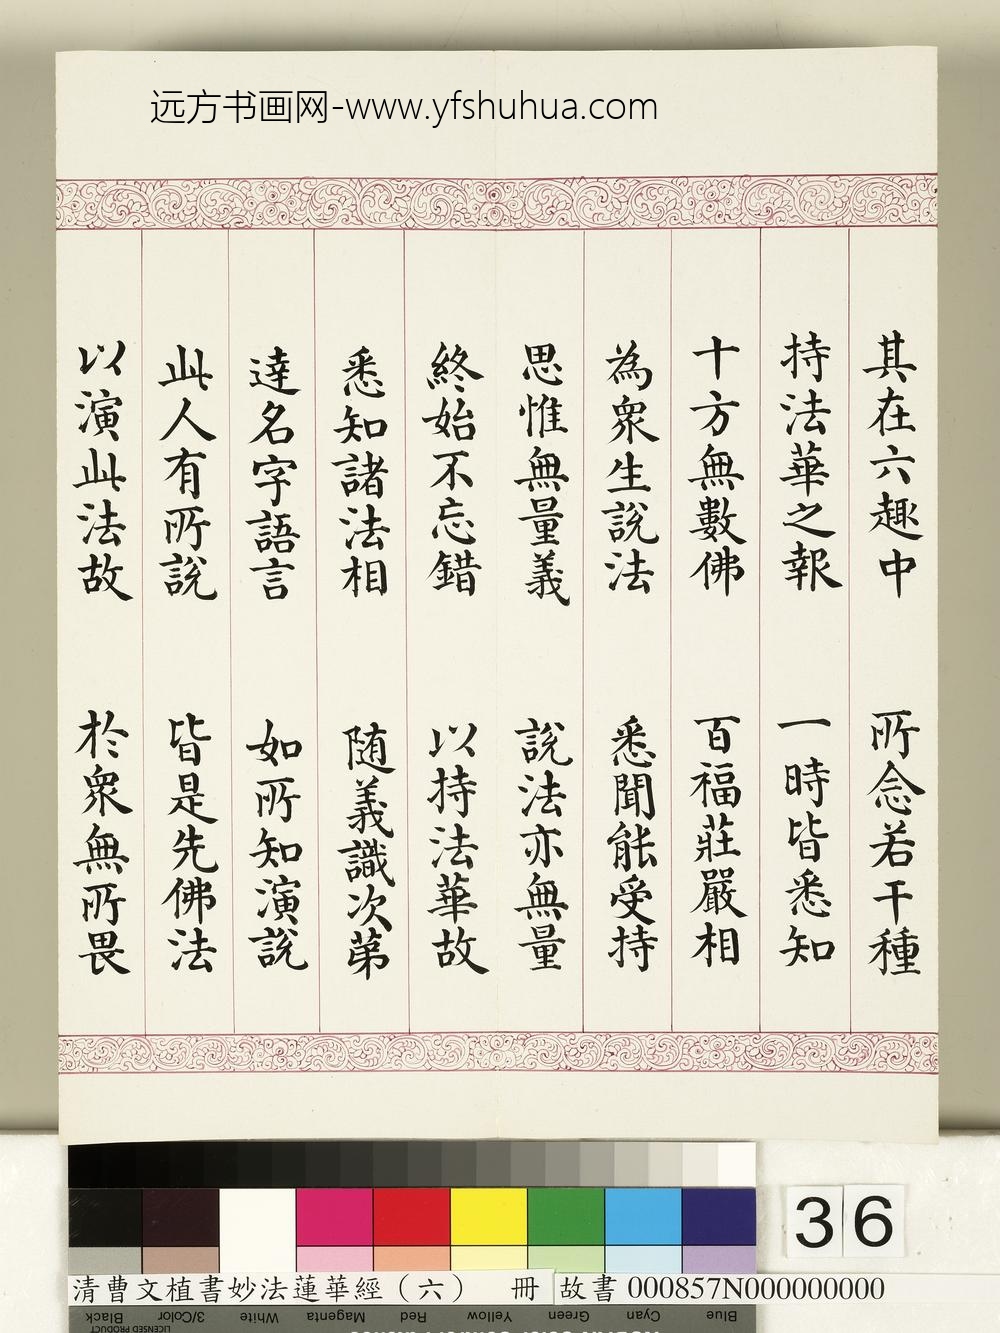 远方书画网-www.yfshuhua.com
其在六趣中 所念若干種
持法華之報 一時皆悉知
十方無數佛 百福莊嚴相
為衆生說法 悉聞能受持
思惟無量義 說法亦無量
終始不忘錯 以持法華故
悉知諸法相 随義識次苐
達名字語言 如所知演說
此人有所說 皆是先佛法
以演此法故 於衆無所畏
36
清曹文植書妙法蓮華經（六） 冊 故書 000857N000000000
Blue Cyan Green Yellow Red Magenta White 3/Color Black
LICENSED PRODUCT